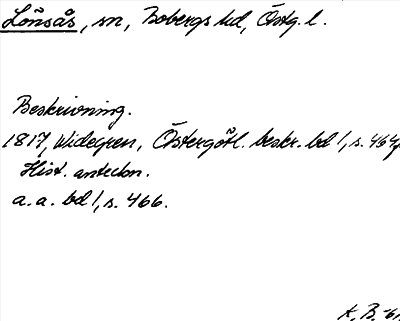 Lönsås, sn, Bobergs hd, Östg. l.
Beskrivning.
1817, Widegren, Östergötl. beskr. bd 1, s. 464
Hist. anteckn.
a. a. bd 1, s. 466.
A. B. -61